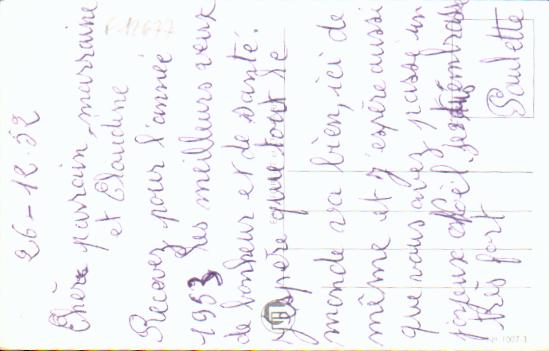 26-12.52
Chers parrain, marraine
et Claudine
Recevez pour l'année
1953 les meilleurs veux
de bonheur et de santé.
J'espère que tout le
monde va bien, ici de
même et j'espère aussi
que vous avez passé un
joyeux Noël. Je vous embrasse
très fort
Paulette
F.12677
N° 1007-1